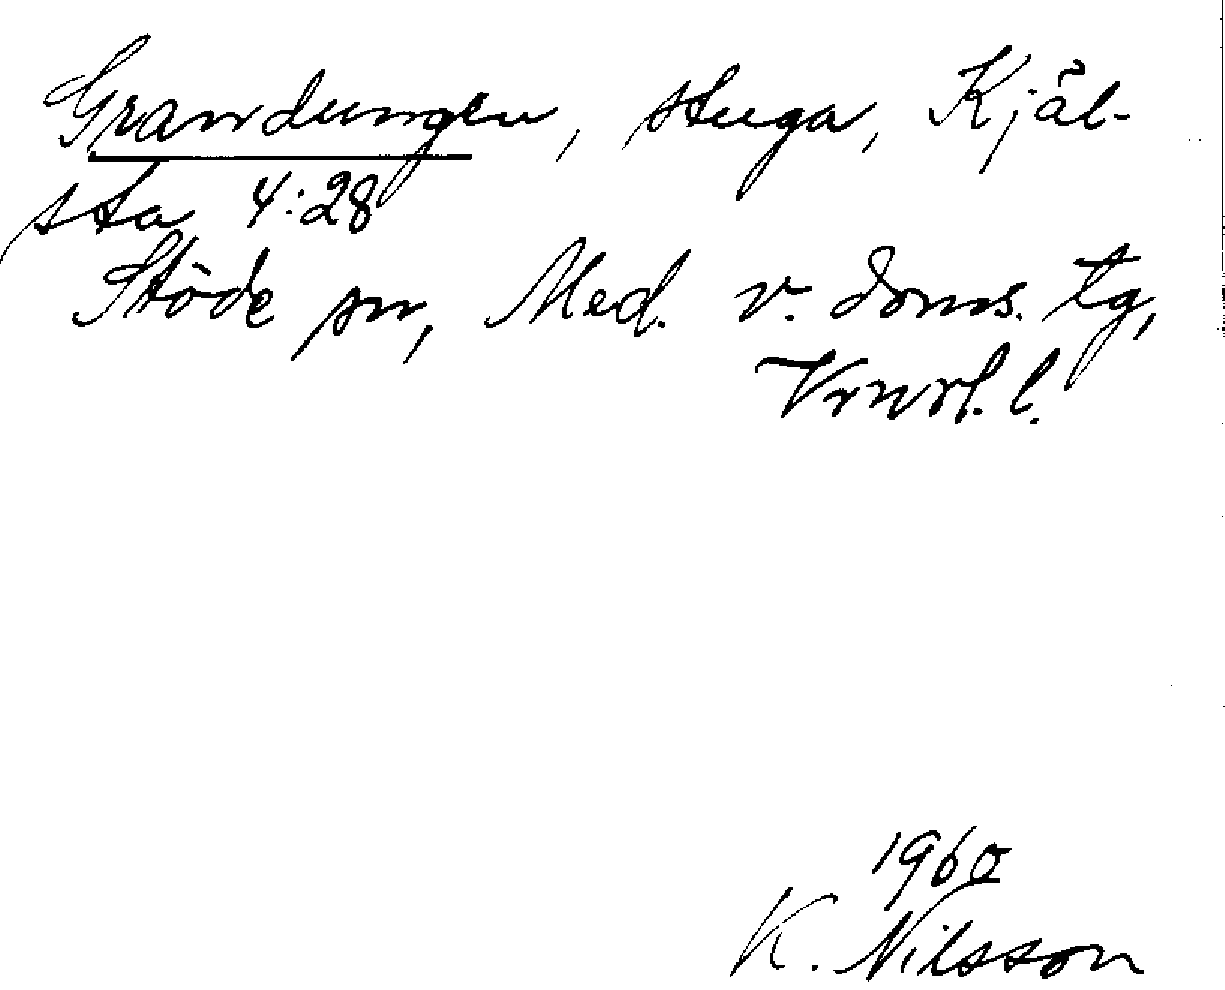 Grandungen, stuga, Kjäl-
sta 4:28
Stöde sn, Med. v. doms. tg,
Vrnrl. l.
1960
K. Nilsson